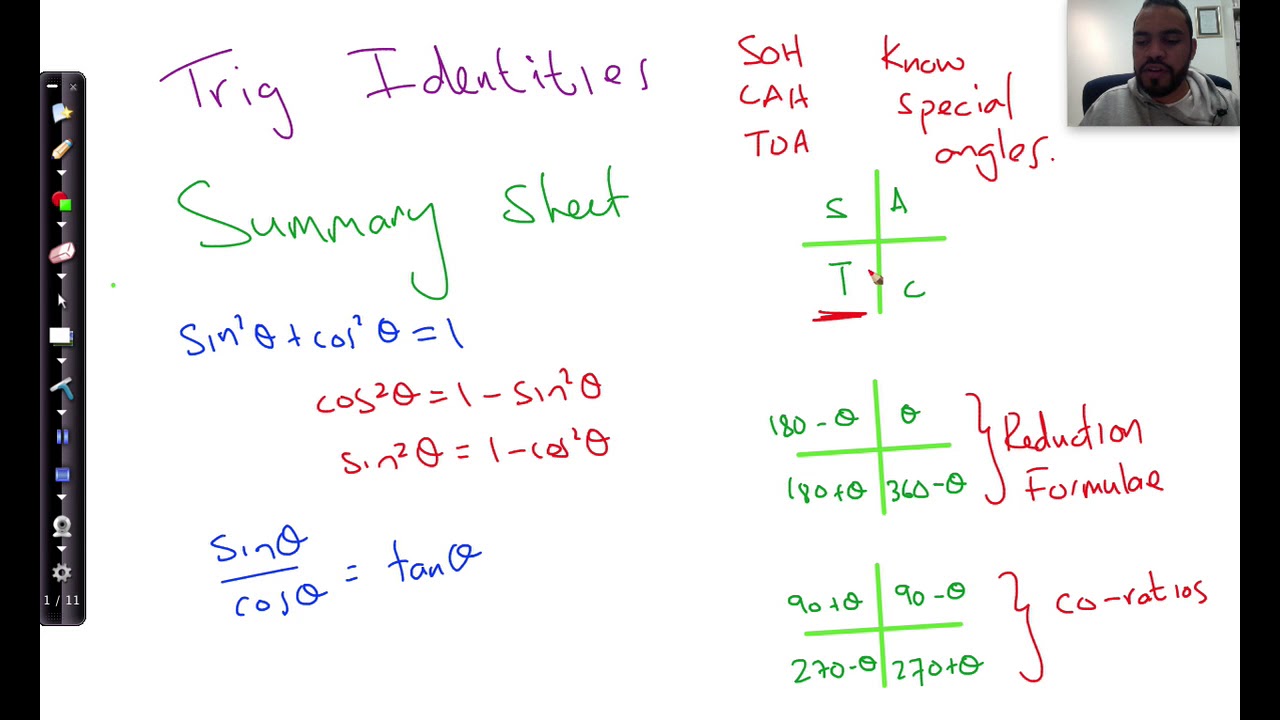 Trig Identities
Summary Sheet
sin²θ + cos²θ = 1
cos²θ = 1 - sin²θ
sin²θ = 1 - cos²θ
sinθ
cosθ
= tanθ
SOH
CAH
TOA
Know
special
angles.
S A
T C
180 - θ θ
180+θ 360-θ
Reduction
Formulae
90+θ 90-θ
270-θ 270+θ
co-ratios
1 / 11